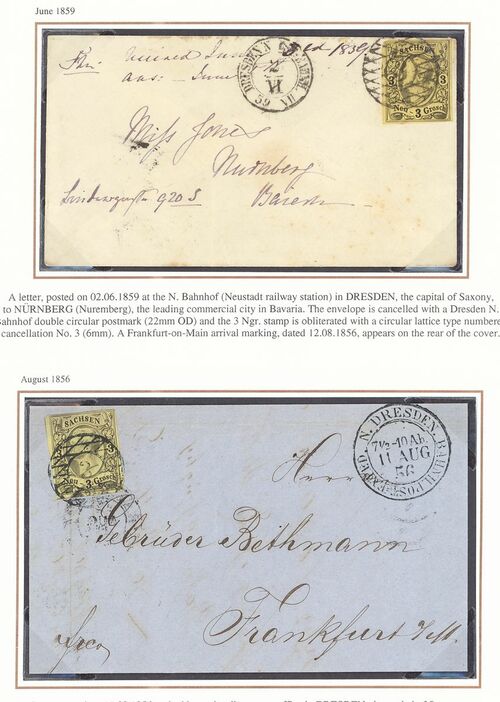 June 1859
1859
DRESDEN N. BAHNH.
2
VI
59
SACHSEN
3 3
Neu Grosch
Miss Jones
Nurnberg
920
A letter, posted on 02.06.1859 at the N. Bahnhof (Neustadt railway station) in DRESDEN, the capital of Saxony,
to NÜRNBERG (Nuremberg), the leading commercial city in Bavaria. The envelope is cancelled with a Dresden N.
Bahnhof double circular postmark (22mm OD) and the 3 Ngr. stamp is obliterated with a circular lattice type numbere
cancellation No. 3 (6mm). A Frankfurt-on-Main arrival marking, dated 12.08.1856, appears on the rear of the cover.
August 1856
SACHSEN
3 3
Neu 3 Grosch
N. DRESDEN. BAHNH. POST-EXPED
7½-10 Ab.
11 AUG
56
Herrn
Gebrüder Bethmann
Frankfurt